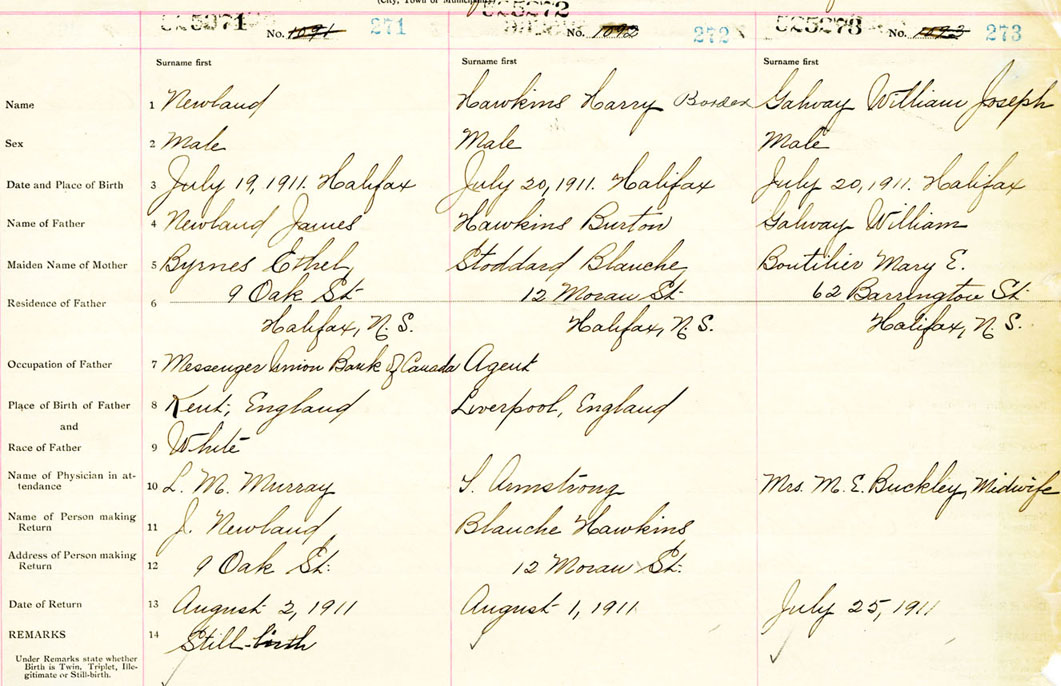 (City, Town or Municipality)
525271 No. 1091 271 525272 No. 1092 272 525273 No. 1093 273
Surname first Surname first Surname first
Name 1 Newland Hawkins Harry Borden Galway William Joseph
Sex 2 Male Male Male
Date and Place of Birth 3 July 19, 1911. Halifax July 20, 1911. Halifax July 20, 1911. Halifax
Name of Father 4 Newland James Hawkins Burton Galway William
Maiden Name of Mother 5 Byrnes Ethel Stoddard Blanche Boutilier Mary E.
Residence of Father 6 9 Oak St. 12 Moran St. 62 Barrington St.
Halifax, N.S. Halifax, N.S. Halifax, N.S.
Occupation of Father 7 Messenger Union Bank of Canada Agent
Place of Birth of Father 8 Kent, England Liverpool, England
and
Race of Father 9 White
Name of Physician in at-
tendance 10 L. M. Murray S. Armstrong Mrs. M. E. Buckley, Midwife
Name of Person making
Return 11 J. Newland Blanche Hawkins
Address of Person making
Return 12 9 Oak St. 12 Moran St.
Date of Return 13 August 2, 1911 August 1, 1911 July 25, 1911
REMARKS 14 Still-birth
Under Remarks state whether
Birth is Twin, Triplet, Ille-
gitimate or Still-birth.